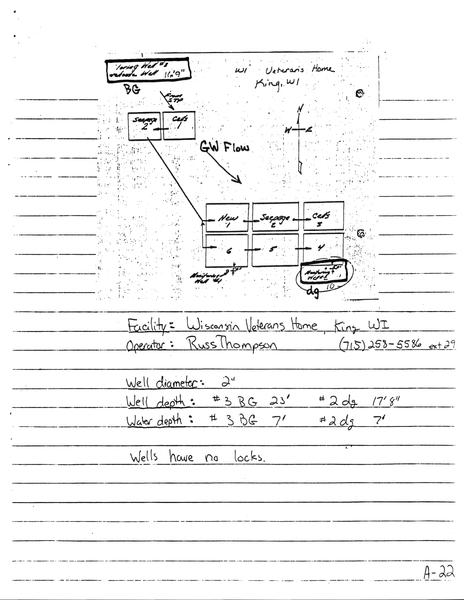 Well 16'9"
BG
WI Veterans Home
King, WI
From
STP
Seepage Cell
2 1
N
W E
GW Flow
New Seepage Cells
1 2 3
6 5 4
Monitoring
Well
Monitoring
Well
dg
Facility: Wisconsin Veterans Home, King WI
Operator: Russ Thompson (715) 258-5586 ext 29
Well diameter: 2"
Well depth: #3 BG 23' #2 dg 17'8"
Water depth: #3 BG 7' #2 dg 7'
Wells have no locks.
A-22